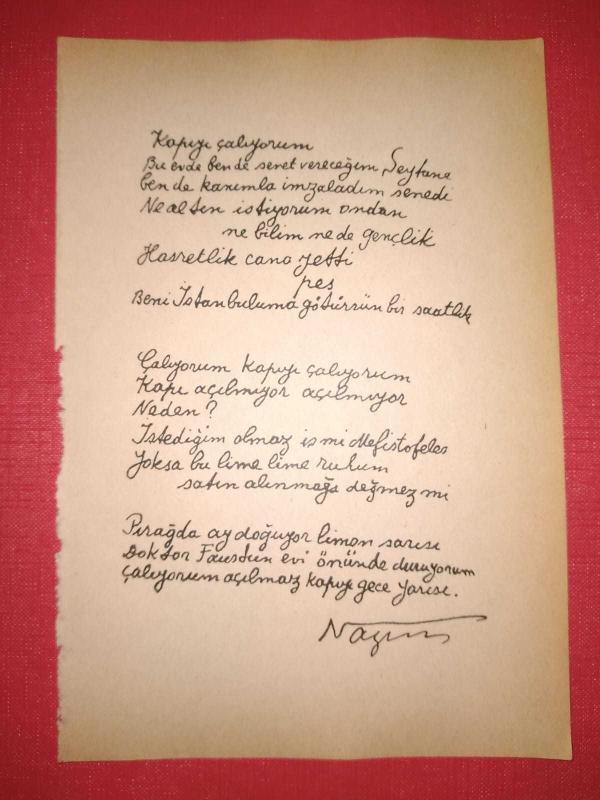 Kapıyı çalıyorum
Bu evde ben de senet vereceğim Şeytana
ben de kanımla imzaladım senedi
Ne altın istiyorum ondan
ne bilim ne de gençlik
Hasretlik cana yetti
pes
Beni İstanbuluma götürsün bir saatlik
Çalıyorum kapıyı çalıyorum
Kapı açılmıyor açılmıyor
Neden?
İstediğim olmaz iş mi Mefistofeles
Yoksa bu lime lime ruhum
satın alınmağa değmez mi
Pırağda ay doğuyor limon sarısı
Doktor Faustun evi önünde duruyorum
çalıyorum açılmaz kapıyı gece yarısı.
Nazım